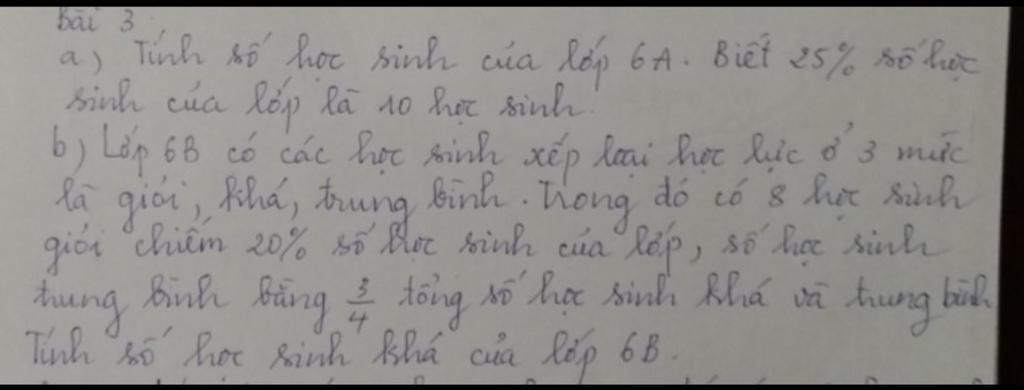 Bài 3
a) Tính số học sinh của lớp 6A. Biết 25% số học
sinh của lớp là 10 học sinh.
b) Lớp 6B có các học sinh xếp loại học lực ở 3 mức
là giỏi, khá, trung bình. Trong đó có 8 học sinh
giỏi chiếm 20% số học sinh của lớp, số học sinh
trung bình bằng 3/4 tổng số học sinh khá và trung bình
Tính số học sinh khá của lớp 6B.